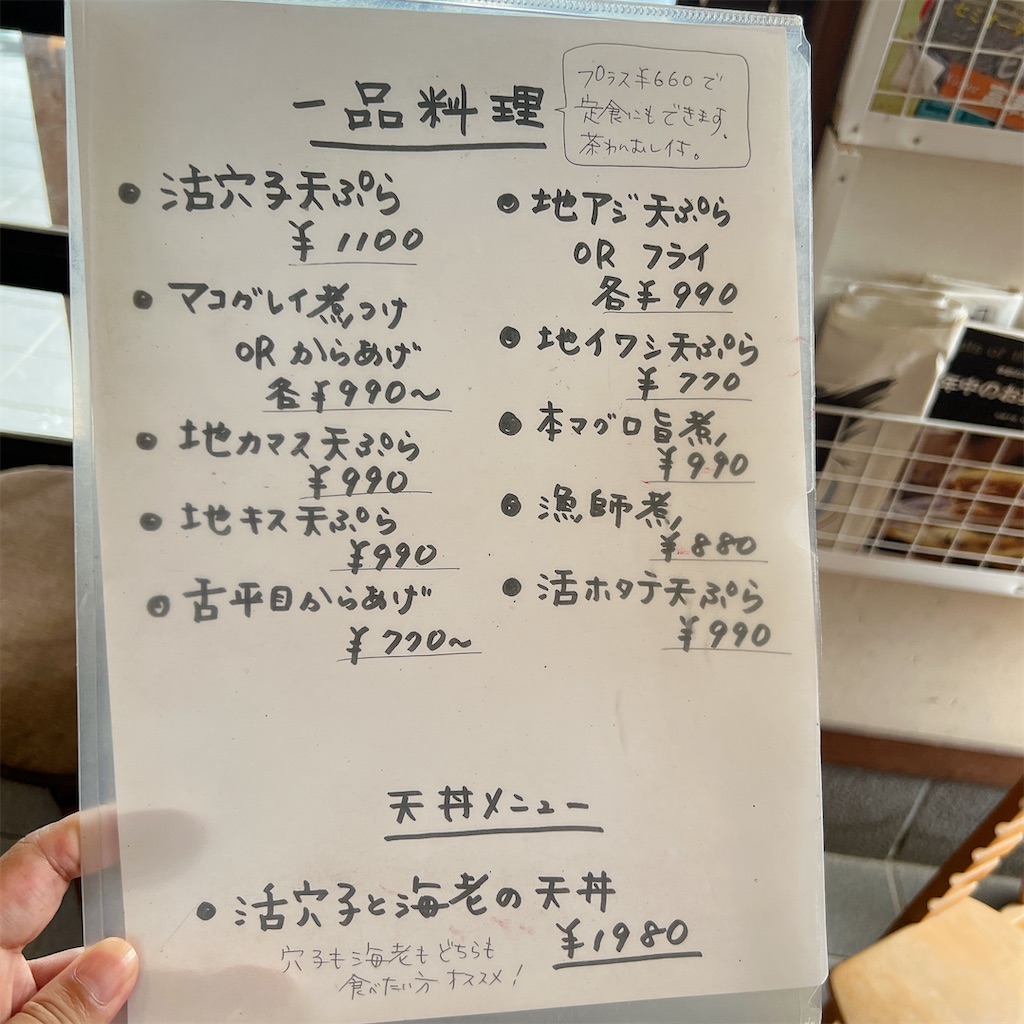 一品料理
プラス¥660で
定食にもできます。
茶わんむし付。
● 活穴子天ぷら
¥1100
● マコガレイ煮つけ
OR からあげ
各¥990～
● 地カマス天ぷら
¥990
● 地キス天ぷら
¥990
● 舌平目からあげ
¥770～
● 地アジ天ぷら
OR フライ
各¥990
● 地イワシ天ぷら
¥770
● 本マグロ旨煮
¥990
● 漁師煮
¥880
● 活ホタテ天ぷら
¥990
天丼メニュー
● 活穴子と海老の天丼
¥1980
穴子も海老もどちらも
食べたい方オススメ!
年中のお